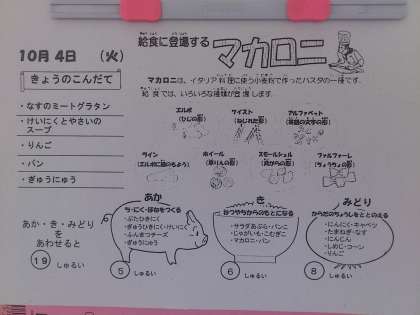 10月4日 （火）
きょうのこんだて
・なすのミートグラタン
・けいにくとやさいの
スープ
・りんご
・パン
・ぎゅうにゅう
給食に登場する
マカロニ
マカロニは、イタリア料理に使う小麦粉で作ったパスタの一種です。
給食では、いろいろな種類が登場します。
エルボ
（ひじの形）
ツイスト
（ねじれた形）
アルファベット
（英語の文字の形）
ライン
ホイール
（車りんの形）
スモールシェル
（貝がらの形）
ファルファーレ
（ちょうちょの形）
あか
ち・にく・ほねをつくる
・ぶたひきにく
・ぎゅうひきにく・けいにく
・ふんまつチーズ
・ぎゅうにゅう
5 しゅるい
き
ねつやちからのもとになる
・サラダあぶら・パンこ
・じゃがいも・こむぎこ
・マカロニ・パン
6 しゅるい
みどり
からだのちょうしをととのえる
・にんにく・キャベツ
・たまねぎ・なす
・にんじん
・しめじ・コーン
・りんご
8 しゅるい
あか・き・みどり
を
あわせると
19 しゅるい